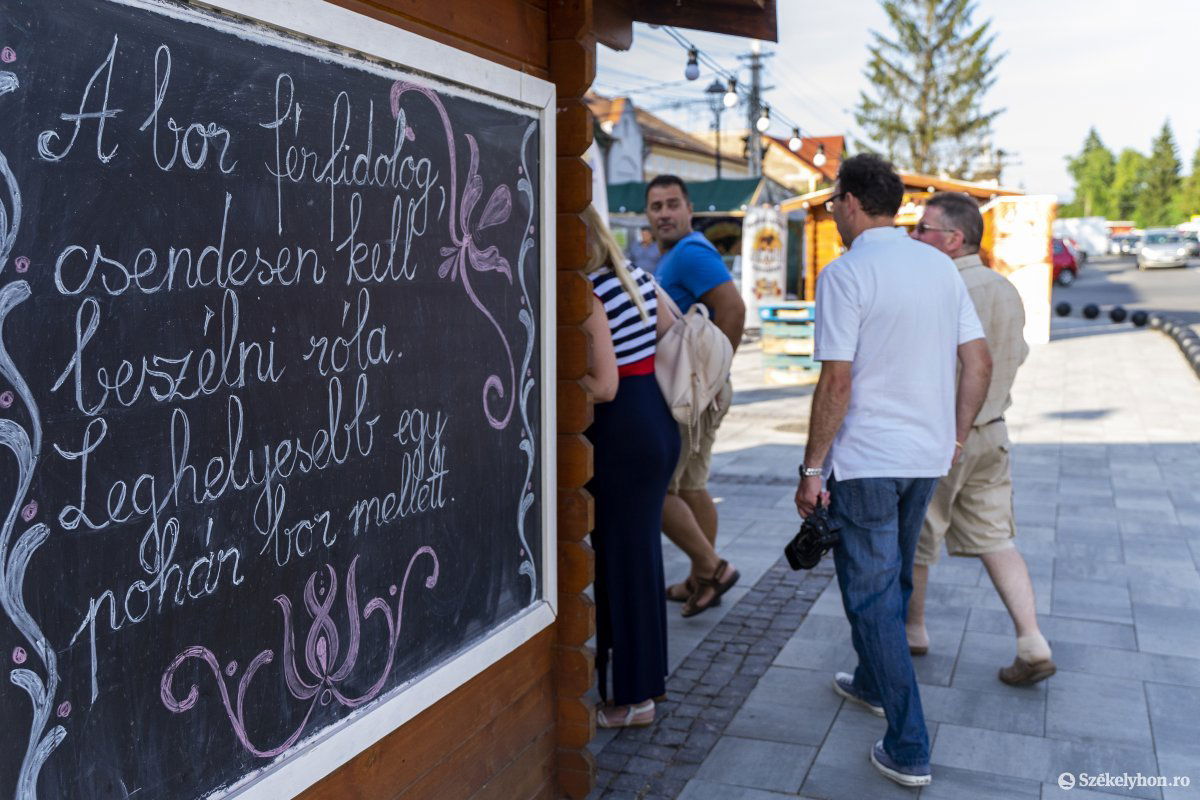 A bor férfidolog,
csendesen kell
beszélni róla.
Leghelyesebb egy
pohár bor mellett.
Székelyhon.ro